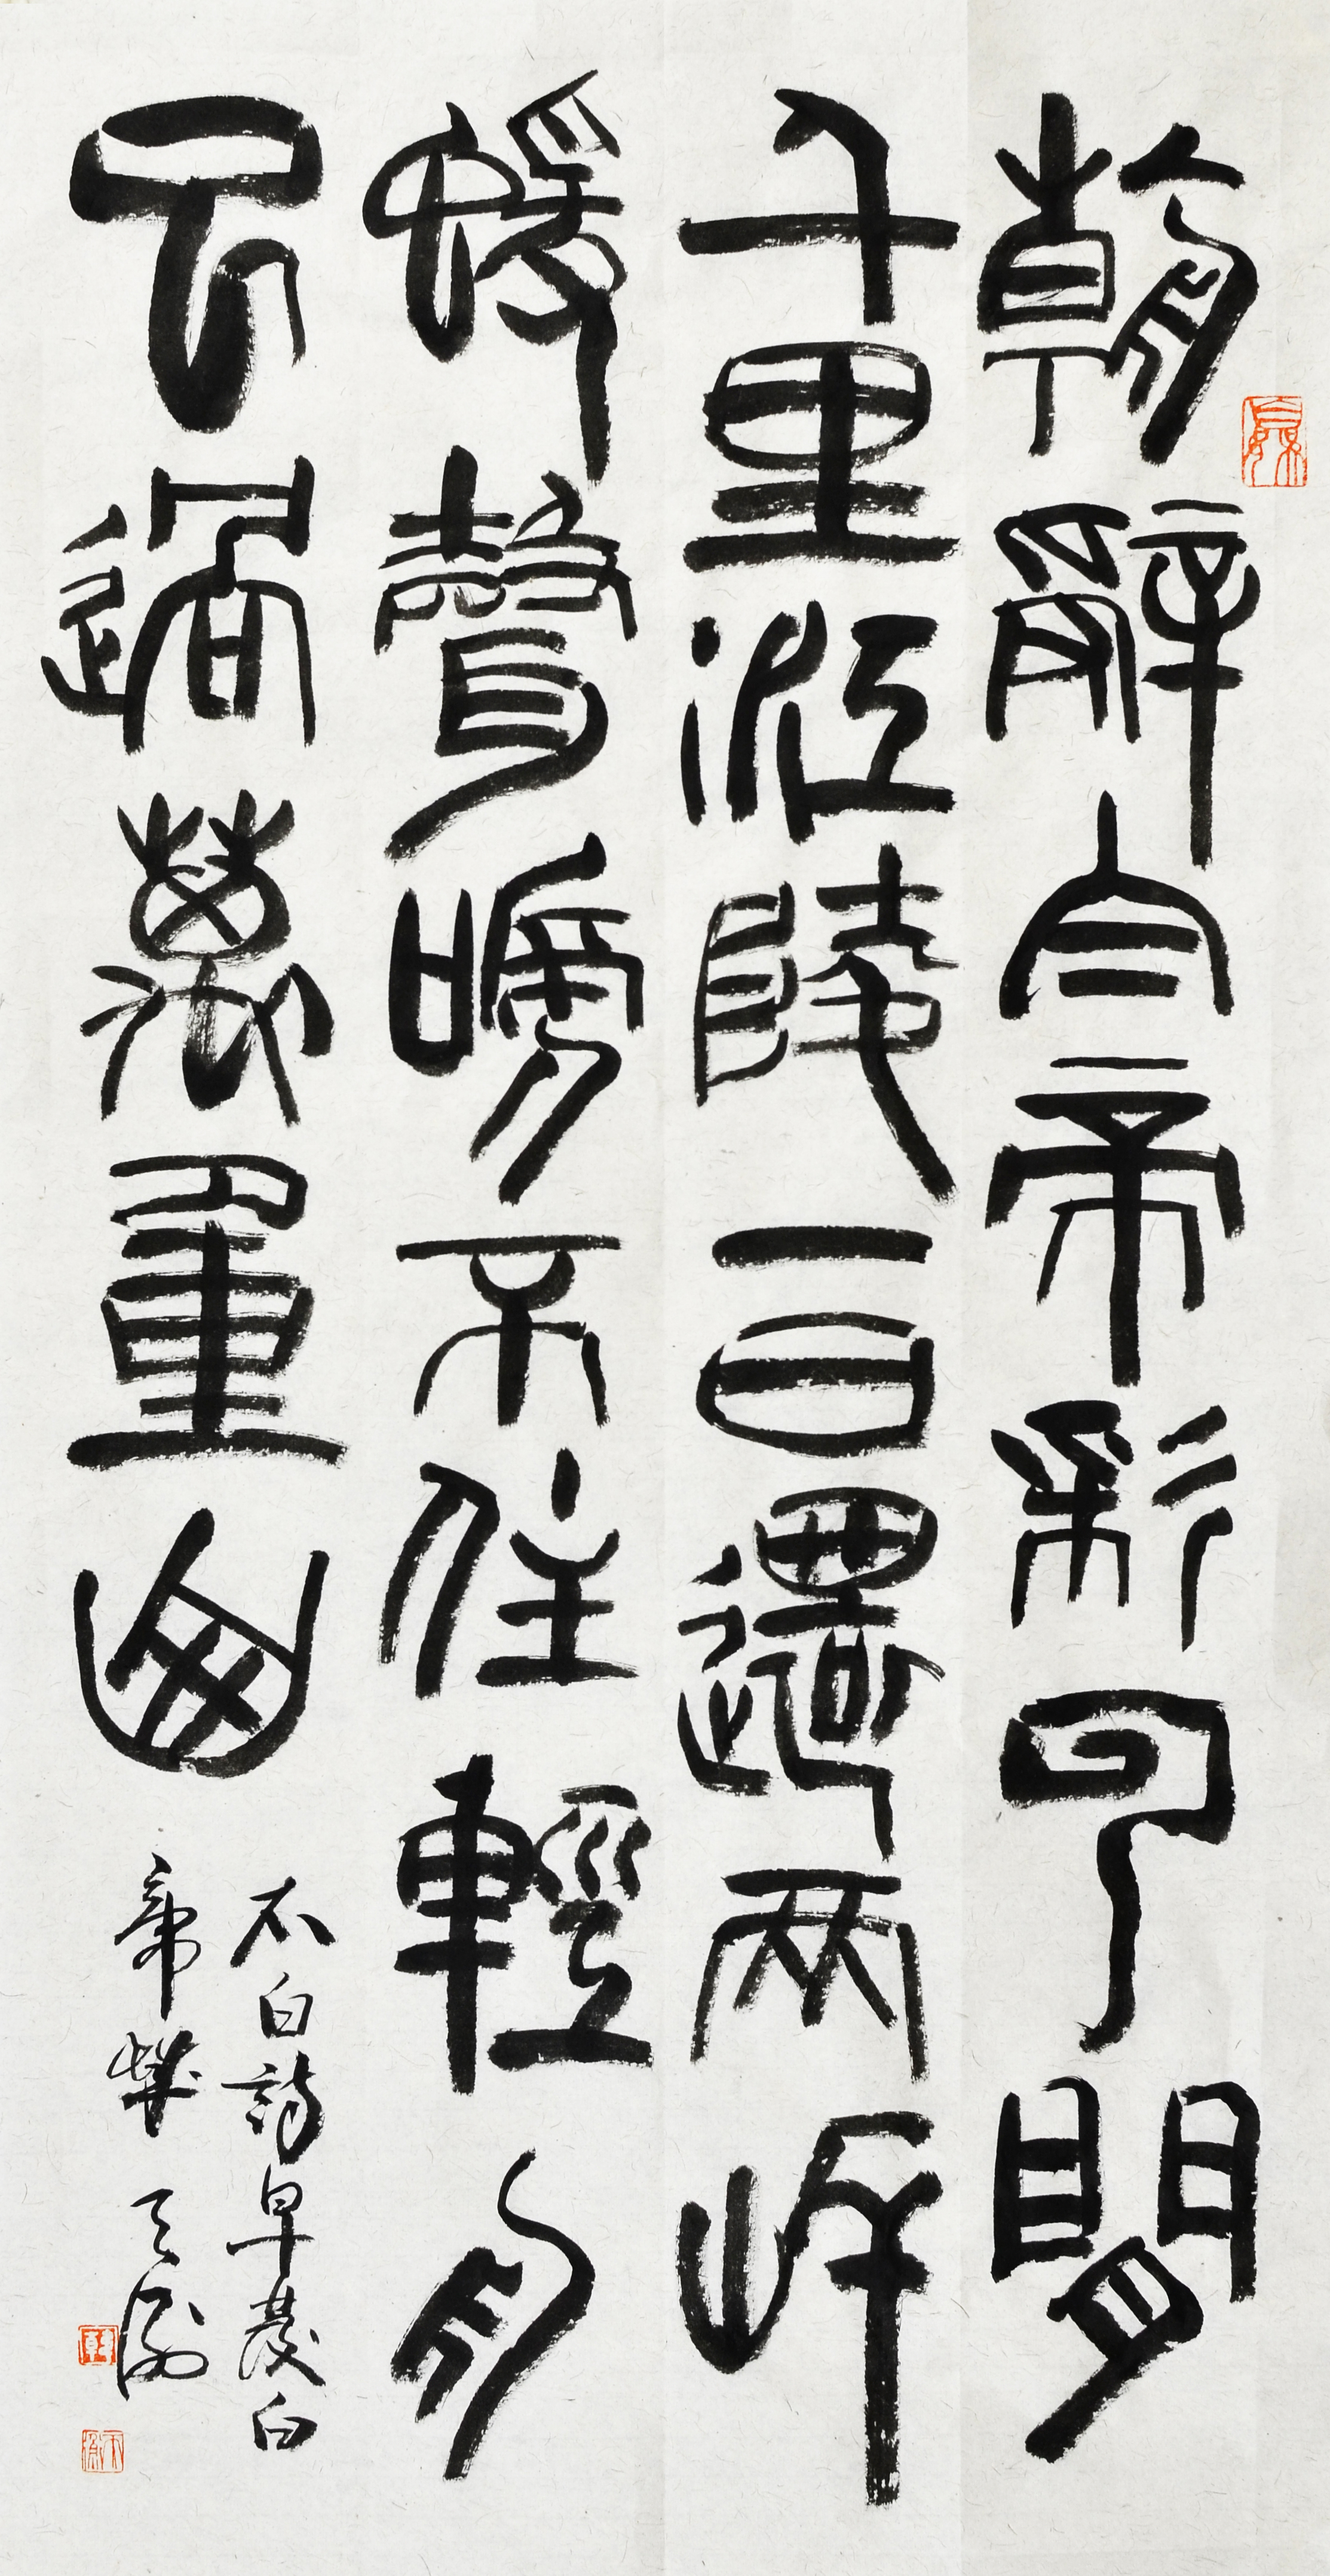 朝辭白帝彩云間
千里江陵一日還兩岸
蝯聲啼不住輕舟
已過萬重山
李白詩早發白
帝城